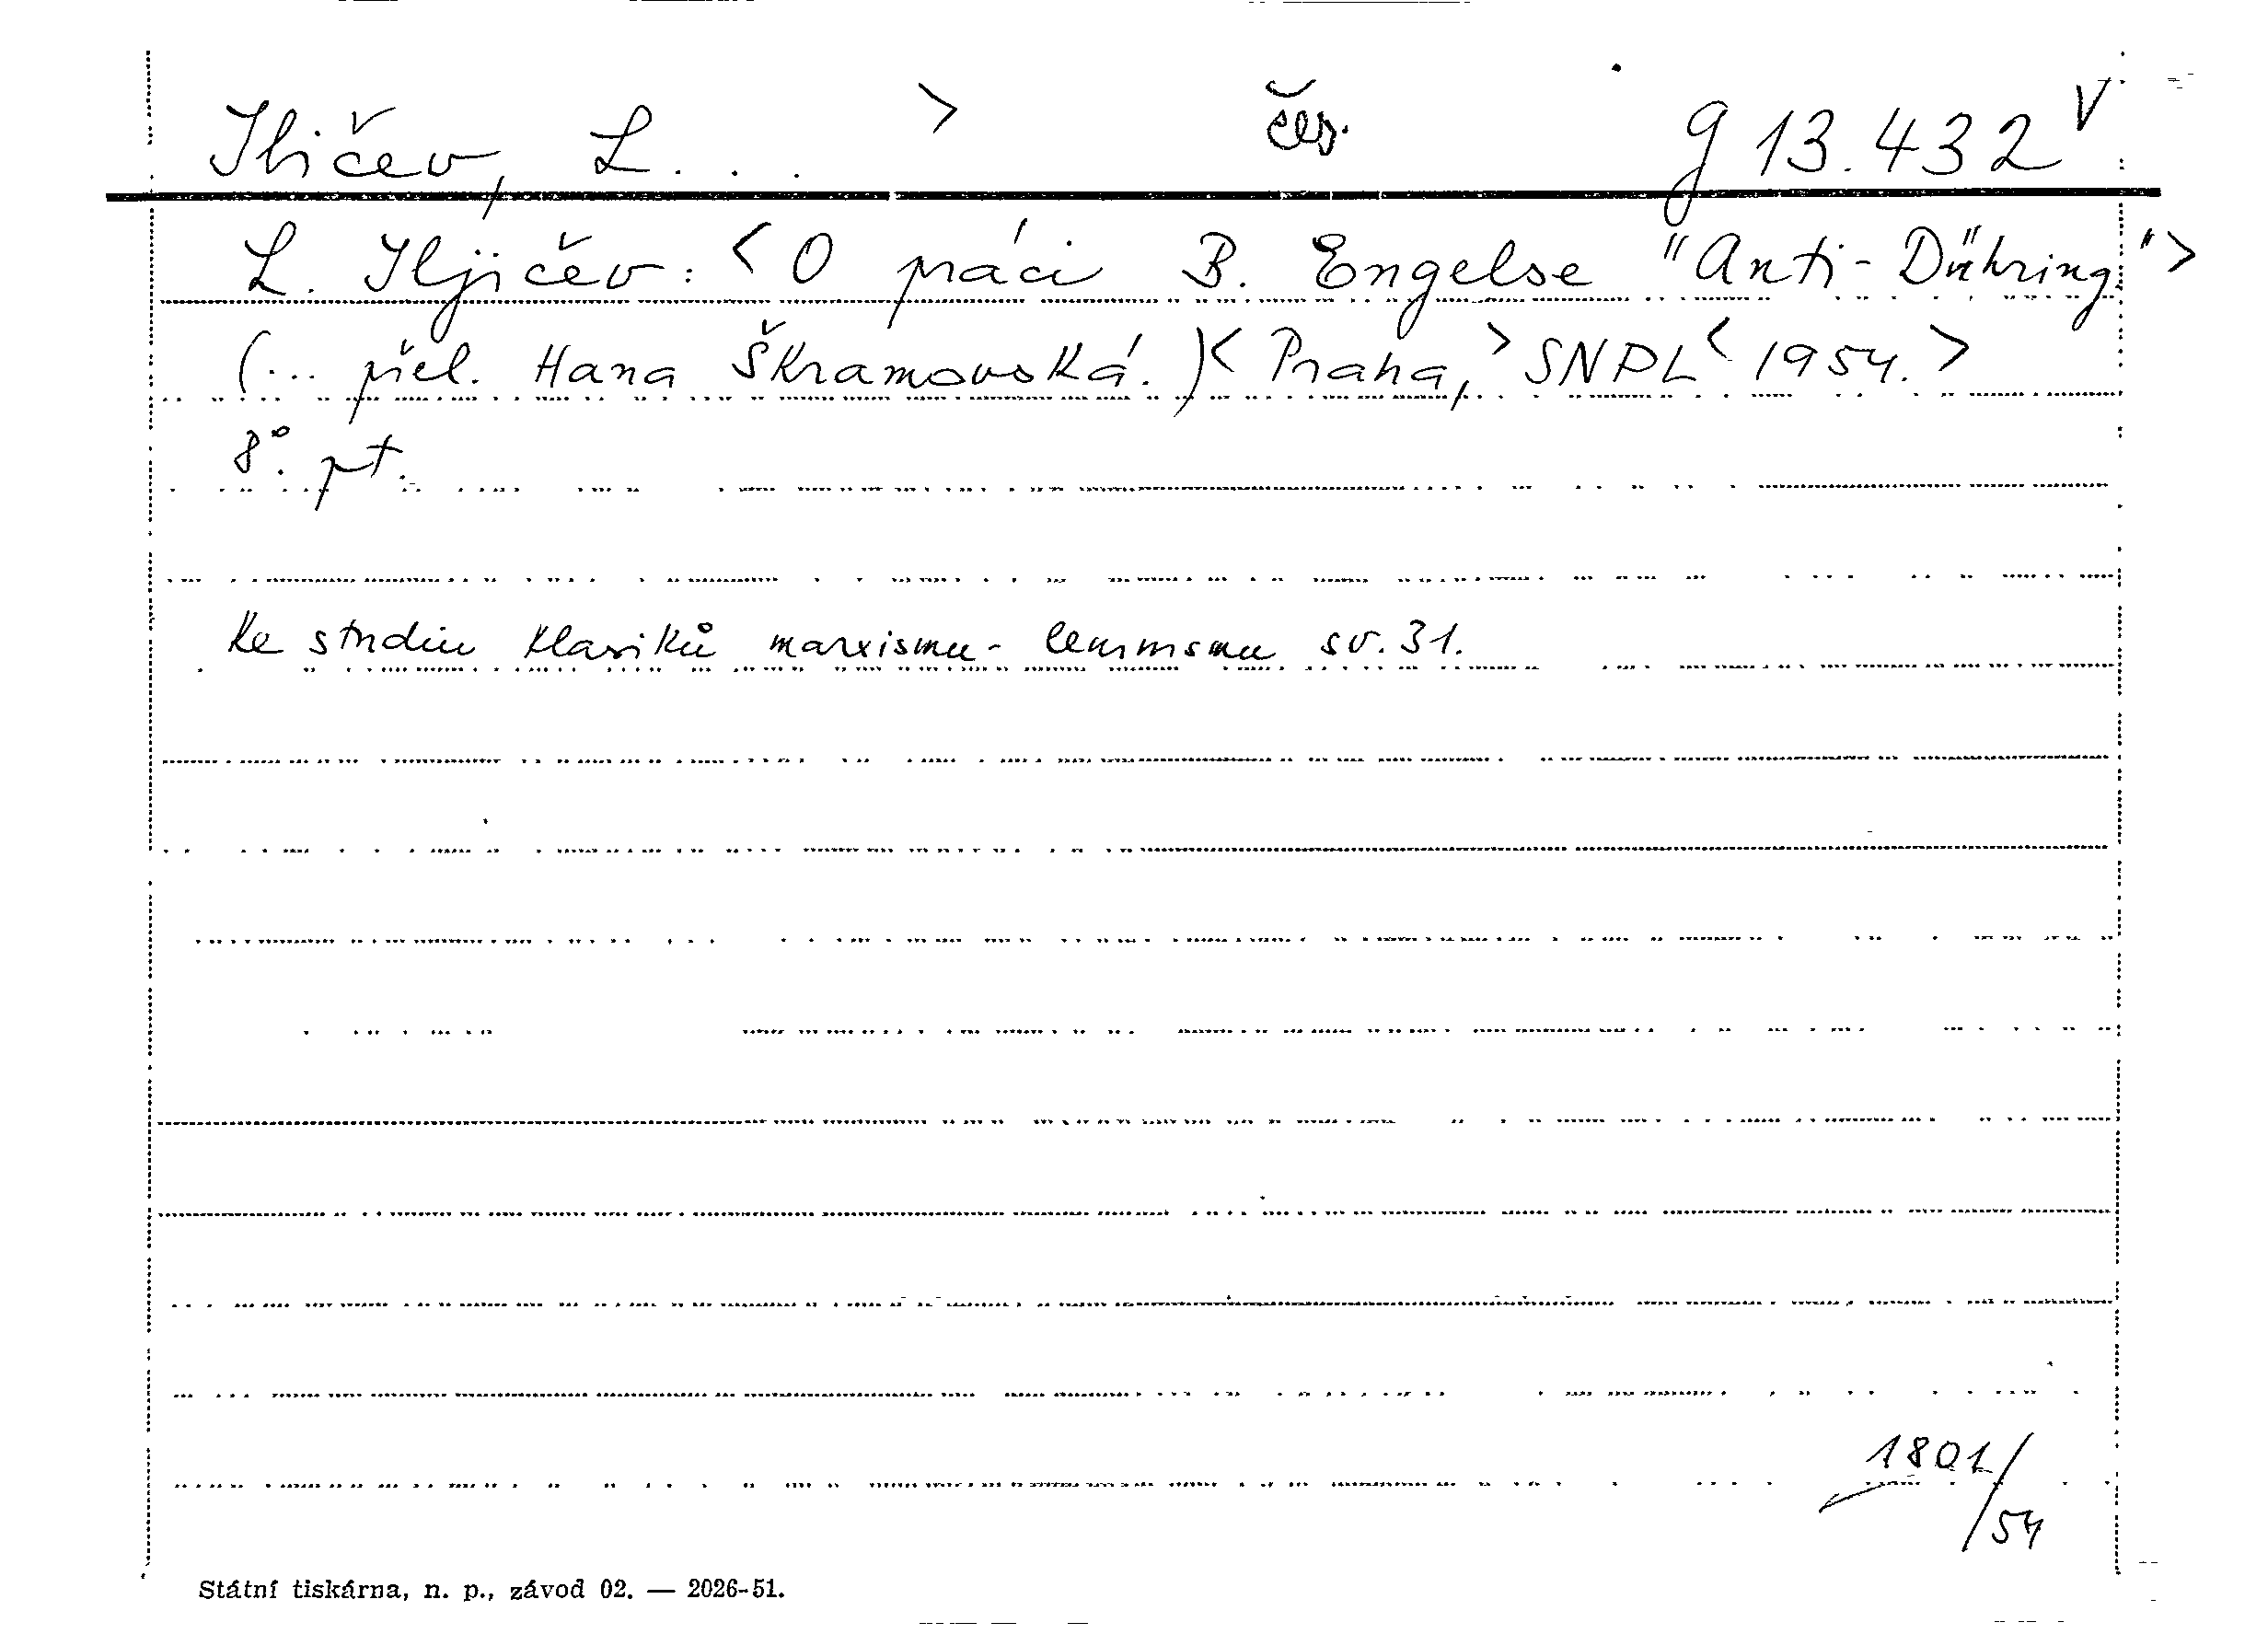 Iličev, L. . . > čes. g 13.432 V
L. Iljičev: < O práci B. Engelse "Anti-Dühring" >
(... přel. Hana Škramovská.) < Praha, > SNPL < 1954. >
8°. pt.
Ke studiu klasiků marxismu-leninismu sv. 31.
1801/54
Státní tiskárna, n. p., závod 02. — 2026-51.